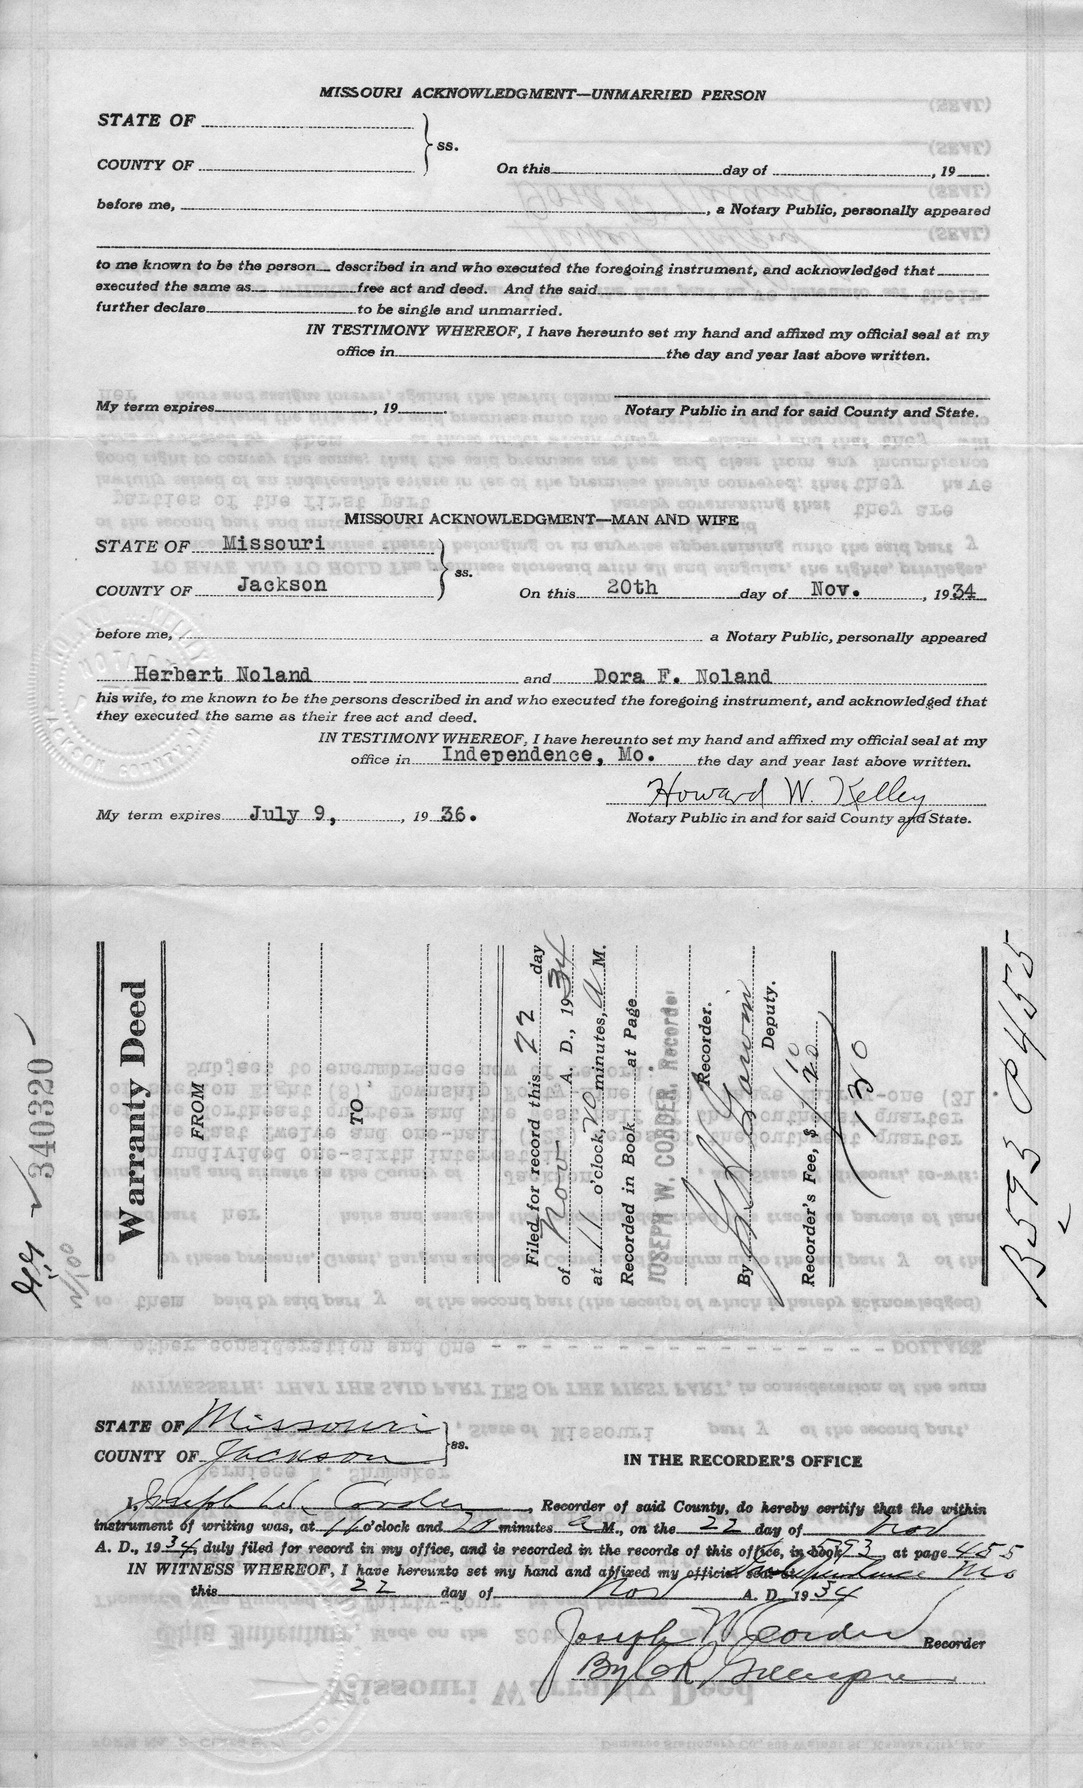 MISSOURI ACKNOWLEDGMENT—UNMARRIED PERSON
STATE OF
ss.
COUNTY OF
On this day of , 19
before me, , a Notary Public, personally appeared
to me known to be the person described in and who executed the foregoing instrument, and acknowledged that
executed the same as free act and deed. And the said
further declare to be single and unmarried.
IN TESTIMONY WHEREOF, I have hereunto set my hand and affixed my official seal at my
office in the day and year last above written.
My term expires , 19
Notary Public in and for said County and State.
MISSOURI ACKNOWLEDGMENT—MAN AND WIFE
STATE OF Missouri
ss.
COUNTY OF Jackson
On this 20th day of Nov. , 1934
before me, a Notary Public, personally appeared
Herbert Noland and Dora F. Noland
his wife, to me known to be the persons described in and who executed the foregoing instrument, and acknowledged that
they executed the same as their free act and deed.
IN TESTIMONY WHEREOF, I have hereunto set my hand and affixed my official seal at my
office in Independence, Mo. the day and year last above written.
Howard W. Kelley
My term expires July 9, , 1936.
Notary Public in and for said County and State.
340320
Warranty Deed
FROM
TO
Filed for record this 22 day
of Nov A. D., 1934
at 11 o'clock, 20 minutes, A M.
Recorded in Book at Page
JOSEPH W. CORDER, Recorder
Recorder.
By Deputy.
Recorder's Fee, $
130
B 593 P 455
STATE OF Missouri
ss.
COUNTY OF Jackson
IN THE RECORDER'S OFFICE
I, Joseph W. Corder , Recorder of said County, do hereby certify that the within
instrument of writing was, at 11 o'clock and 20 minutes a M., on the 22 day of Nov
A. D., 1934, duly filed for record in my office, and is recorded in the records of this office, in book 593 at page 455
IN WITNESS WHEREOF, I have hereunto set my hand and affixed my official seal at Independence Mo
this 22 day of Nov A. D. 1934
Joseph W Corder Recorder
By C R Gillespie